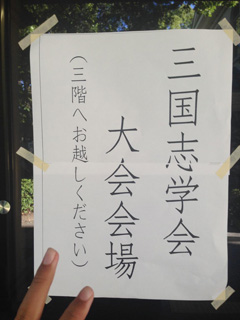 三国志学会
大会会場
（三階へお越しください）